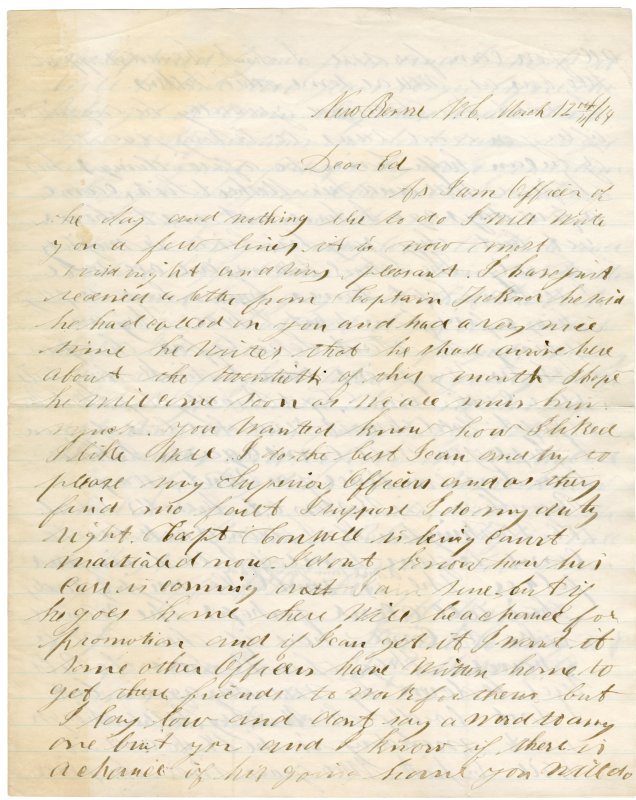 New Berne N.C. March 12th/64
Dear Ed
As I am Officer of
the day and nothing else to do I will write
you a few lines it is now most
midnight and very pleasant. I have just
received a letter from Captain he said
he had called on you and had a very nice
time he writes that he shall arrive here
about the twentieth of this month I hope
he will come soon as we all miss him
much. you wanted know how I liked
I like well. I do the best I can and try to
please my Superior Officers and as they
find no fault I suppose I do my duty
right. Capt Cornell is being court
martialed now. I dont know how his
case is coming sure. but if
he goes home there will be a chance for
promotion and if I can get it I want it
Some other Officers have written home to
get there friends to work for them but
I lay low and dont say a word to any
one but you and I know if there is
a chance of his going home you will do